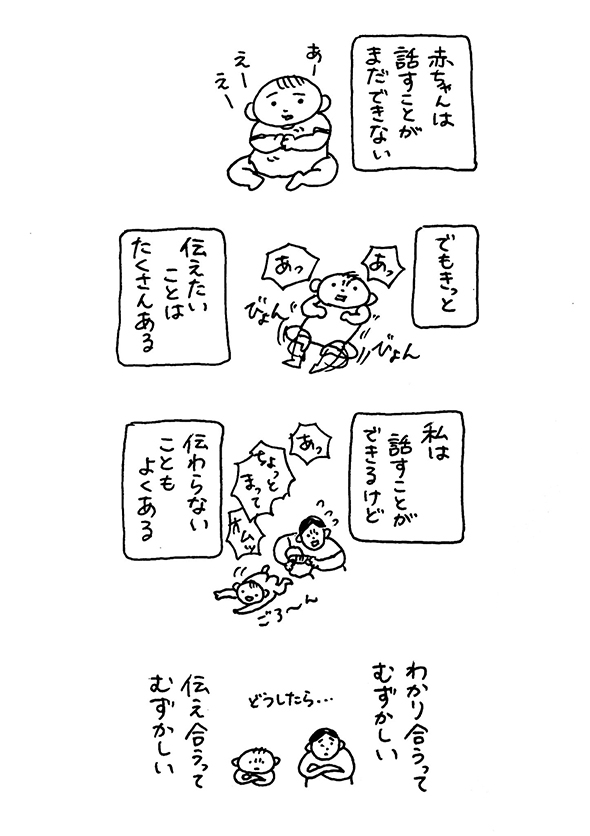 赤ちゃんは
話すことが
まだできない
あー
えー
えー
でもきっと
あっ
あっ
びょん
びょん
伝えたい
ことは
たくさんある
私は
話すことが
できるけど
あっ
ちょっと
まって
オムツ
ごろ〜ん
伝わらない
ことも
よくある
わかり合うって
むずかしい
どうしたら...
伝え合うって
むずかしい